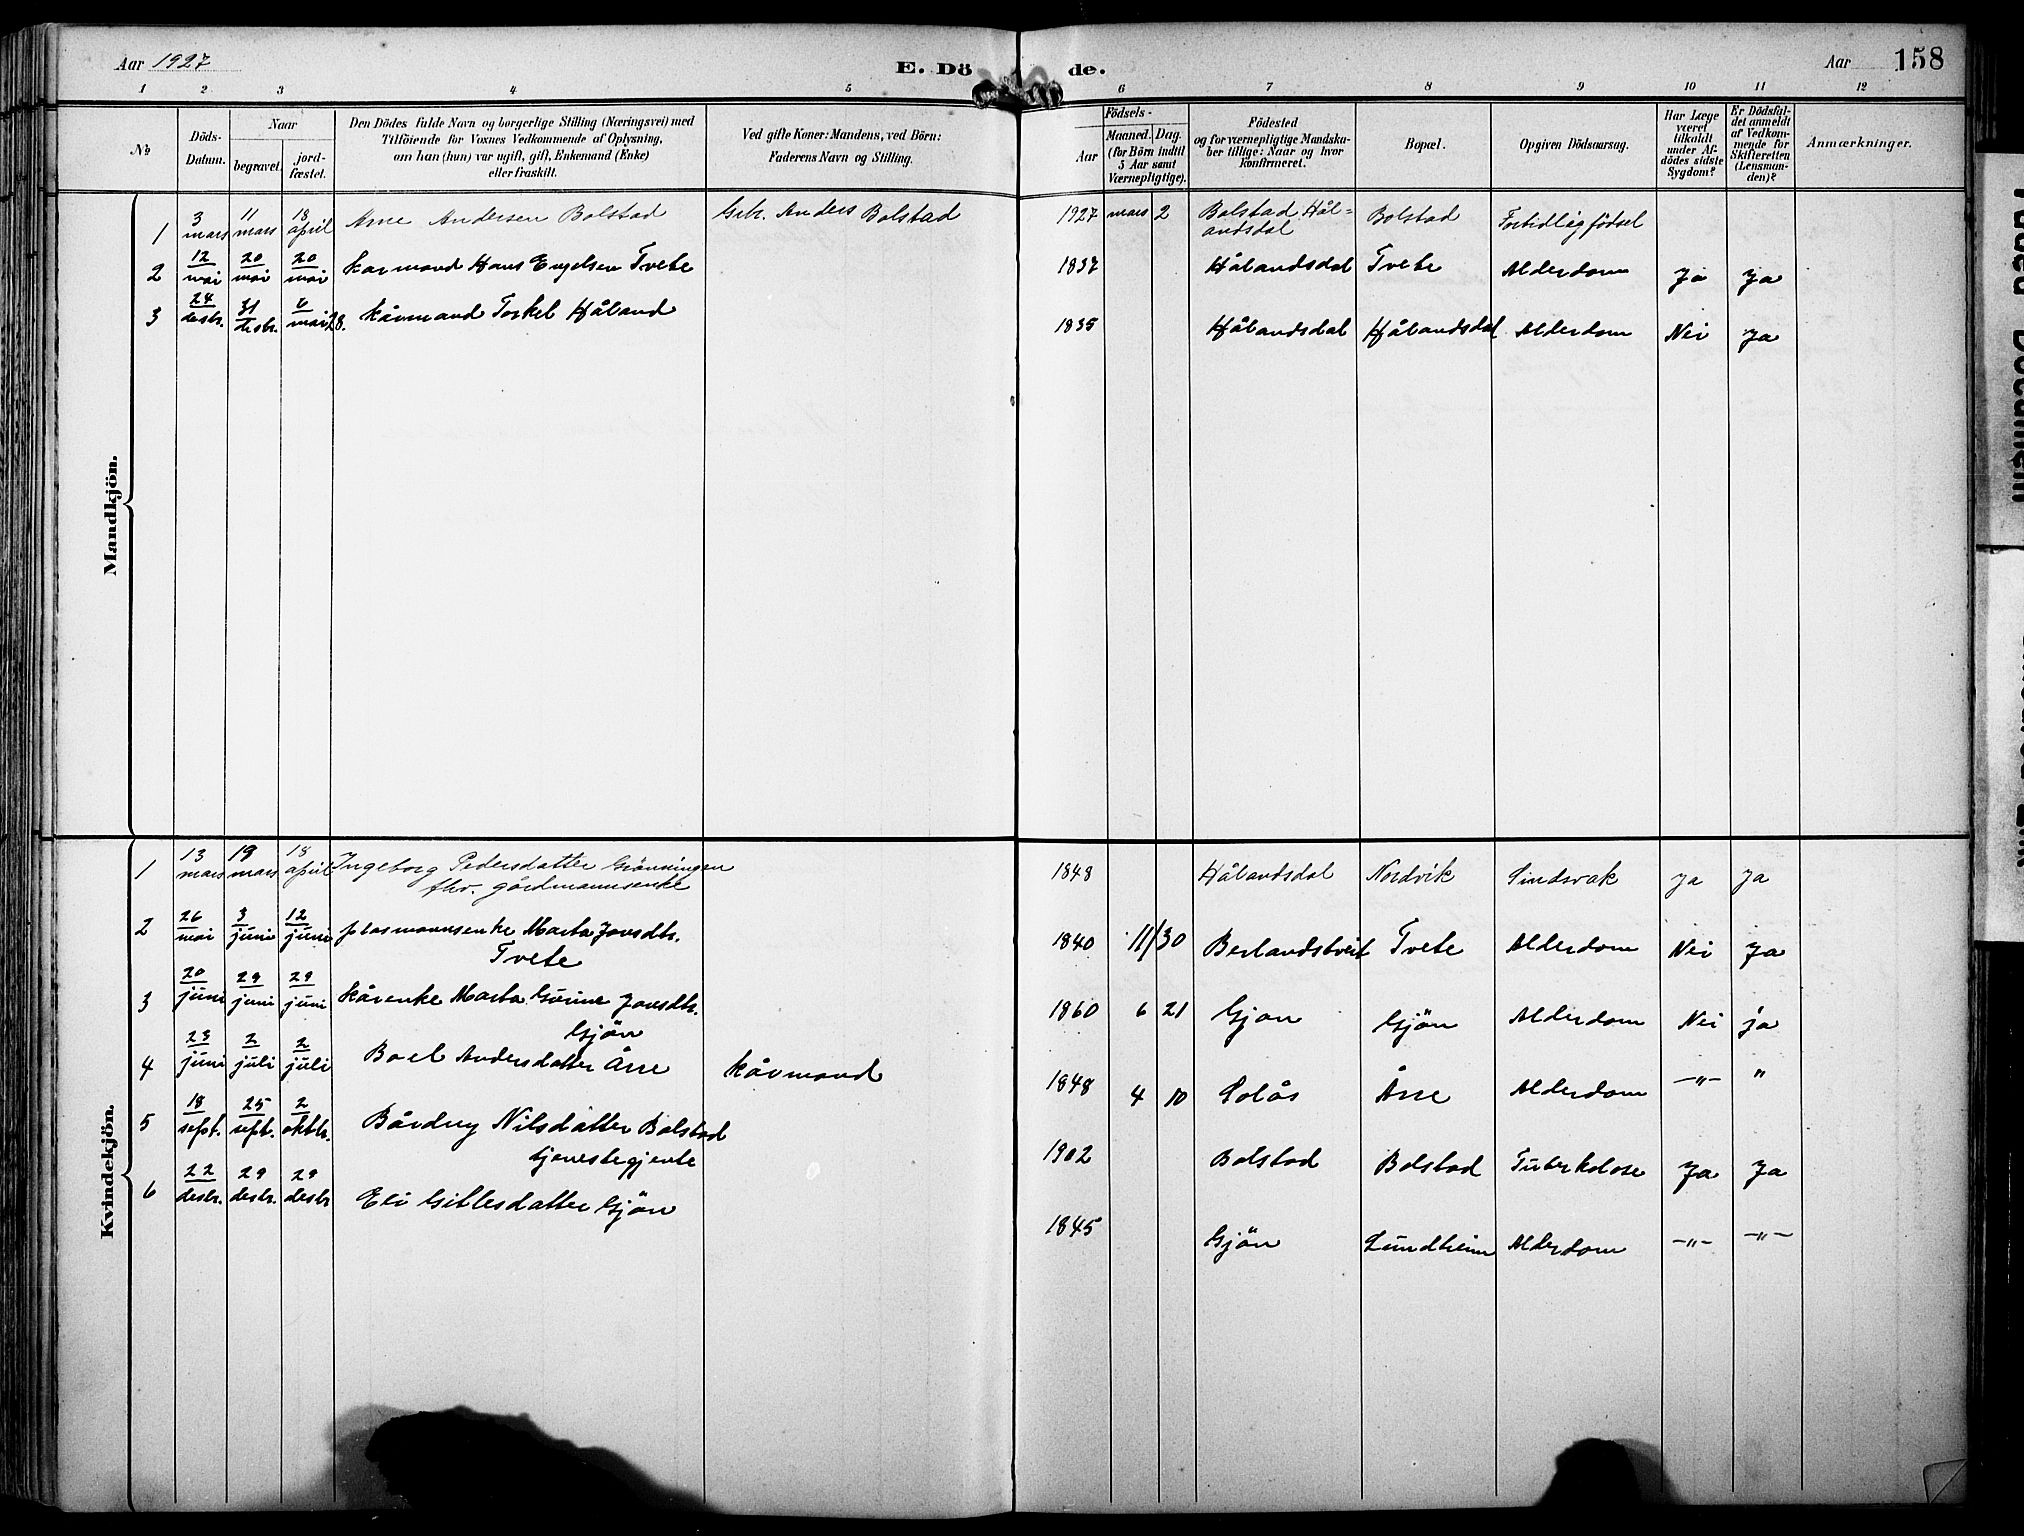 Aar 1927
E. Dö de.
Aar 158
1 2 3 4 5 6 7 8 9 10 11 12
No
Döds-Datum.
Naar
begravet.
jord-fæstet.
Den Dödes fulde Navn og borgerlige Stilling (Næringsvei) med
Tilföiende for Voxnes Vedkommende af Oplysning,
om han (hun) var ugift, gift, Enkemand (Enke)
eller fraskilt.
Ved gifte Koner: Mandens, ved Börn:
Faderens Navn og Stilling.
Födsels-
Aar
Maaned. Dag.
(for Börn indtil
5 Aar samt
Værnepligtige).
Födested
og for værnepligtige Mandska-
ber tillige: Naar og hvor
konfirmeret.
Bopæl.
Opgiven Dödsaarsag.
Har Læge
været
tilkaldt
under Af-
dödes sidste
Sygdom?
Er Dödsfal-
det anmeldt
af Vedkom-
mende for
Skifteretten
(Lensman-
den)?
Anmærkninger.
Mandkjön.
1 3 mars 11 mars 18 april Arne Andersen Bolstad Grb. Anders Bolstad 1927 mars 2 Bolstad Hål=
andsdal Bolstad Fortidlig födsel
2 12 mai 20 mai 20 mai kårmand Hans Engelsen Tvete 1837 Hålandsdal Tvete Alderdom Ja Ja
3 24 desbr. 31 desbr. 6 mai 28. kårmand Torkel Håland 1835 Hålandsdal Hålandsdal Alderdom Nei Ja
Kvindekjön.
1 13 mars 19 mars 18 april Ingeborg Pedersdatter Grönningen
fhv. gårdmannsenke 1848 Hålandsdal Nordvik Sindsvak Ja Ja
2 26 mai 3 juni 12 juni plasmannsenke Marta Jonsdtr.
Tvete 1840 11/30 Berlandstveit Tvete Alderdom Nei Ja
3 20 juni 29 juni 29 juni kårenke Marta Gurine Jonsdtr.
Gjön 1860 6 21 Gjon Gjön Alderdom Nei ja
4 23 juni 2 juli 2 juli Boel Andersdatter Åse kårmand 1848 4 10 Solås Åse Alderdom -"- "
5 18 sept. 25 sept. 2 oktbr. Bårdny Nilsdatter Bolstad
tjenestegjente 1902 Bolstad Bolstad Tuberkolose Ja Ja
6 22 desbr. 29 desbr. 29 desbr Eli Gitlesdatter Gjön 1845 Gjön Lundheim Alderdom -"- -"-